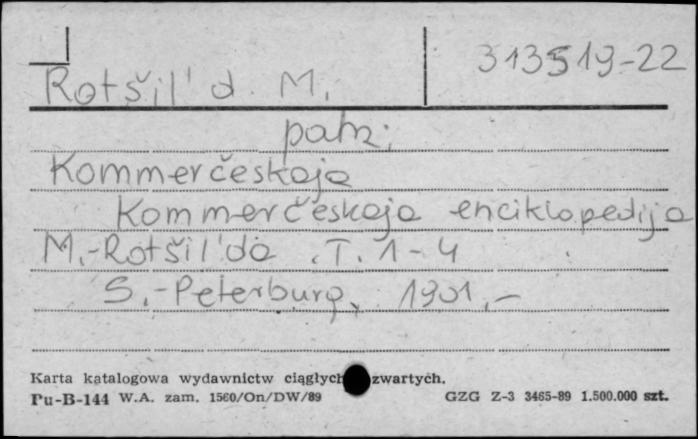 313519-22
Rotšil'd M.
patrz:
Kommerčeskaja
Kommerčeskaja enciklopedija
M.-Rotšil'da . T. 1-4
S.-Peterburg, 1901.-
Karta katalogowa wydawnictw ciągłych zwartych.
Pu-B-144 W.A. zam. 1560/On/DW/89 GZG Z-3 3465-89 1.500.000 szt.